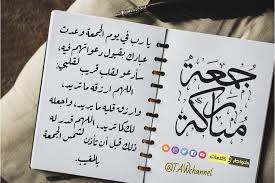 يا رب في يوم الجمعة وعدت
عبادك بقبول دعواتهم فيه،
سأدعو لقلب قريب لقلبي:
اللهم ارزقه ما يريد،
وارزق قلبه ما يريد، واجعله
لك كما تريد، اللهم قدر له
ذلك قبل أن تأذن لشمس الجمعة
بالمغيب.
جمعة
مباركة
خواطر في كلمات
@TAWchannel